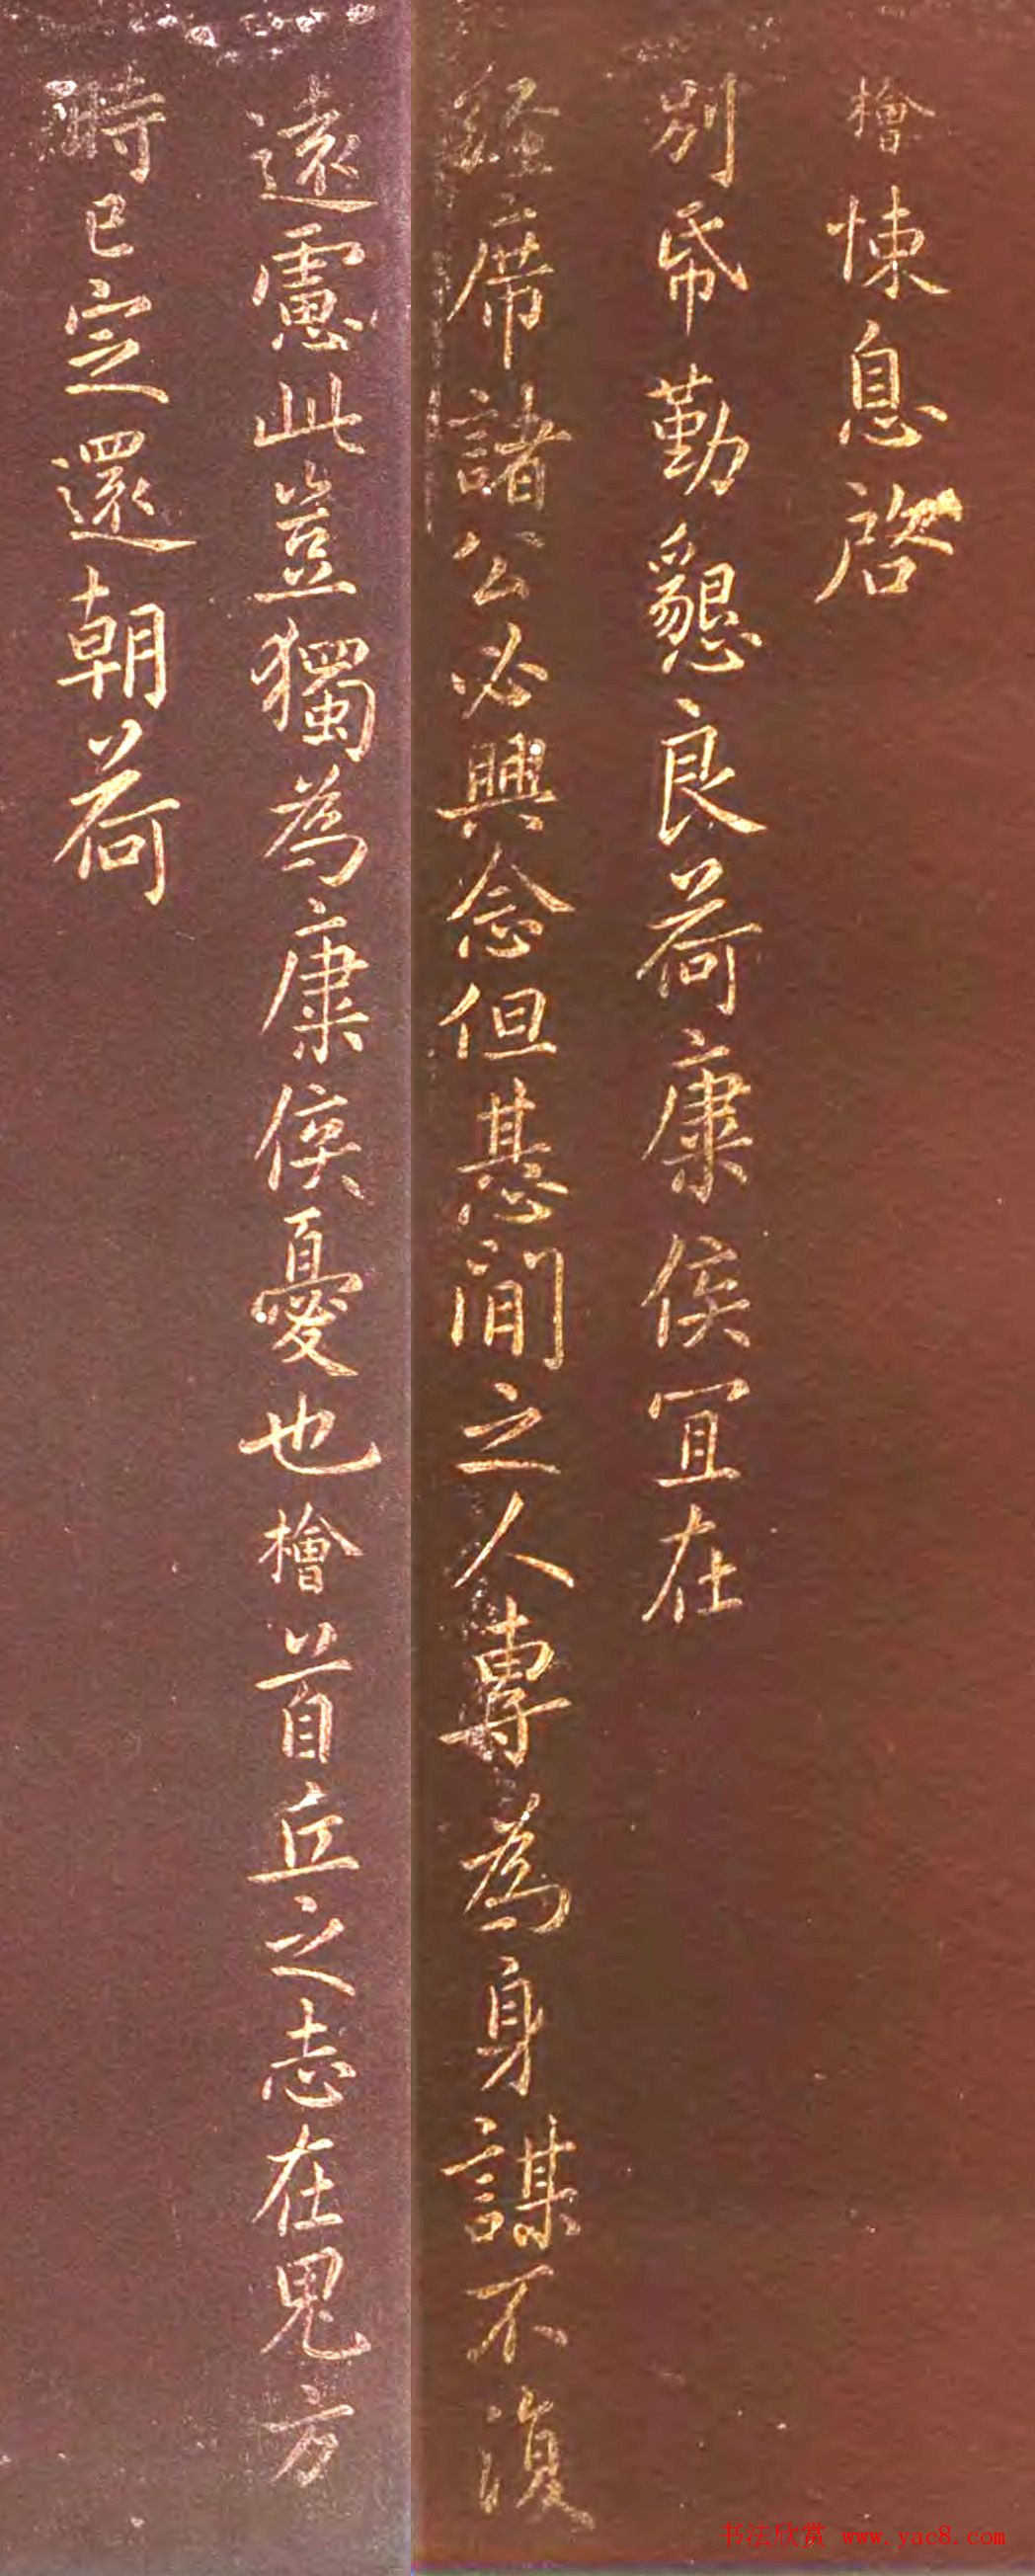 檜悚息啓
別帋勤懇良荷康侯宜在
経席諸公必興念但惎間之人專為身謀不復
遠慮此豈獨為康侯憂也檜首丘之志在鬼方
時已定還朝荷
书法欣赏 www.yac8.com